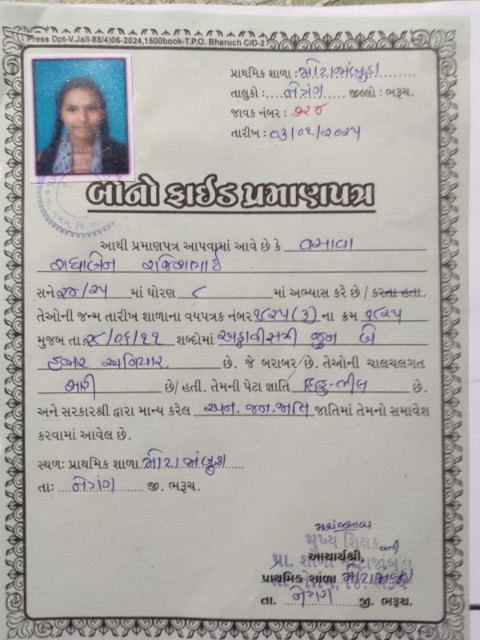 Press Dpt-V.Jail-88/4)06-2024,1500book-T.P.O. Bharuch C/D-2
પ્રાથમિક શાળા : મોટાજાંબુડા
તાલુકો : નેત્રંગ જીલ્લો : ભરૂચ.
જાવક નંબર : ૧૨૪
તારીખ : ૦૩/૦૧/૨૦૨૫
બોનોફાઈડ પ્રમાણપત્ર
આથી પ્રમાણપત્ર આપવામાં આવે છે કે વસાવા
રાધાબેન રવિશભાઈ
સને ૨૪/૨૫ માં ધોરણ ૮ માં અભ્યાસ કરે છે / કરતા હતા.
તેઓની જન્મ તારીખ શાળાના વયપત્રક નંબર ૧/૨૫(૩) ના ક્રમ ૧/૨૫
મુજબ તા ૨૮/૦૬/૧૧ શબ્દોમાં અઠ્ઠાવીસમી જુન બે
હજાર અગિયાર છે. જે બરાબર છે. તેઓની ચાલચલગત
સારી છે/ હતી. તેમની પેટા જ્ઞાતિ હિન્દુ-ભીલ છે.
અને સરકારશ્રી દ્વારા માન્ય કરેલ અનુ. જન. જાતિ જાતિમાં તેમનો સમાવેશ
કરવામાં આવેલ છે.
સ્થળ: પ્રાથમિક શાળા મોટાજાંબુડા
તા: નેત્રંગ જી. ભરૂચ.
મુખ્ય શિક્ષક
આચાર્યશ્રી,
પ્રાથમિક શાળા મોટાજાંબુડા
તા. નેત્રંગ જી. ભરૂચ.